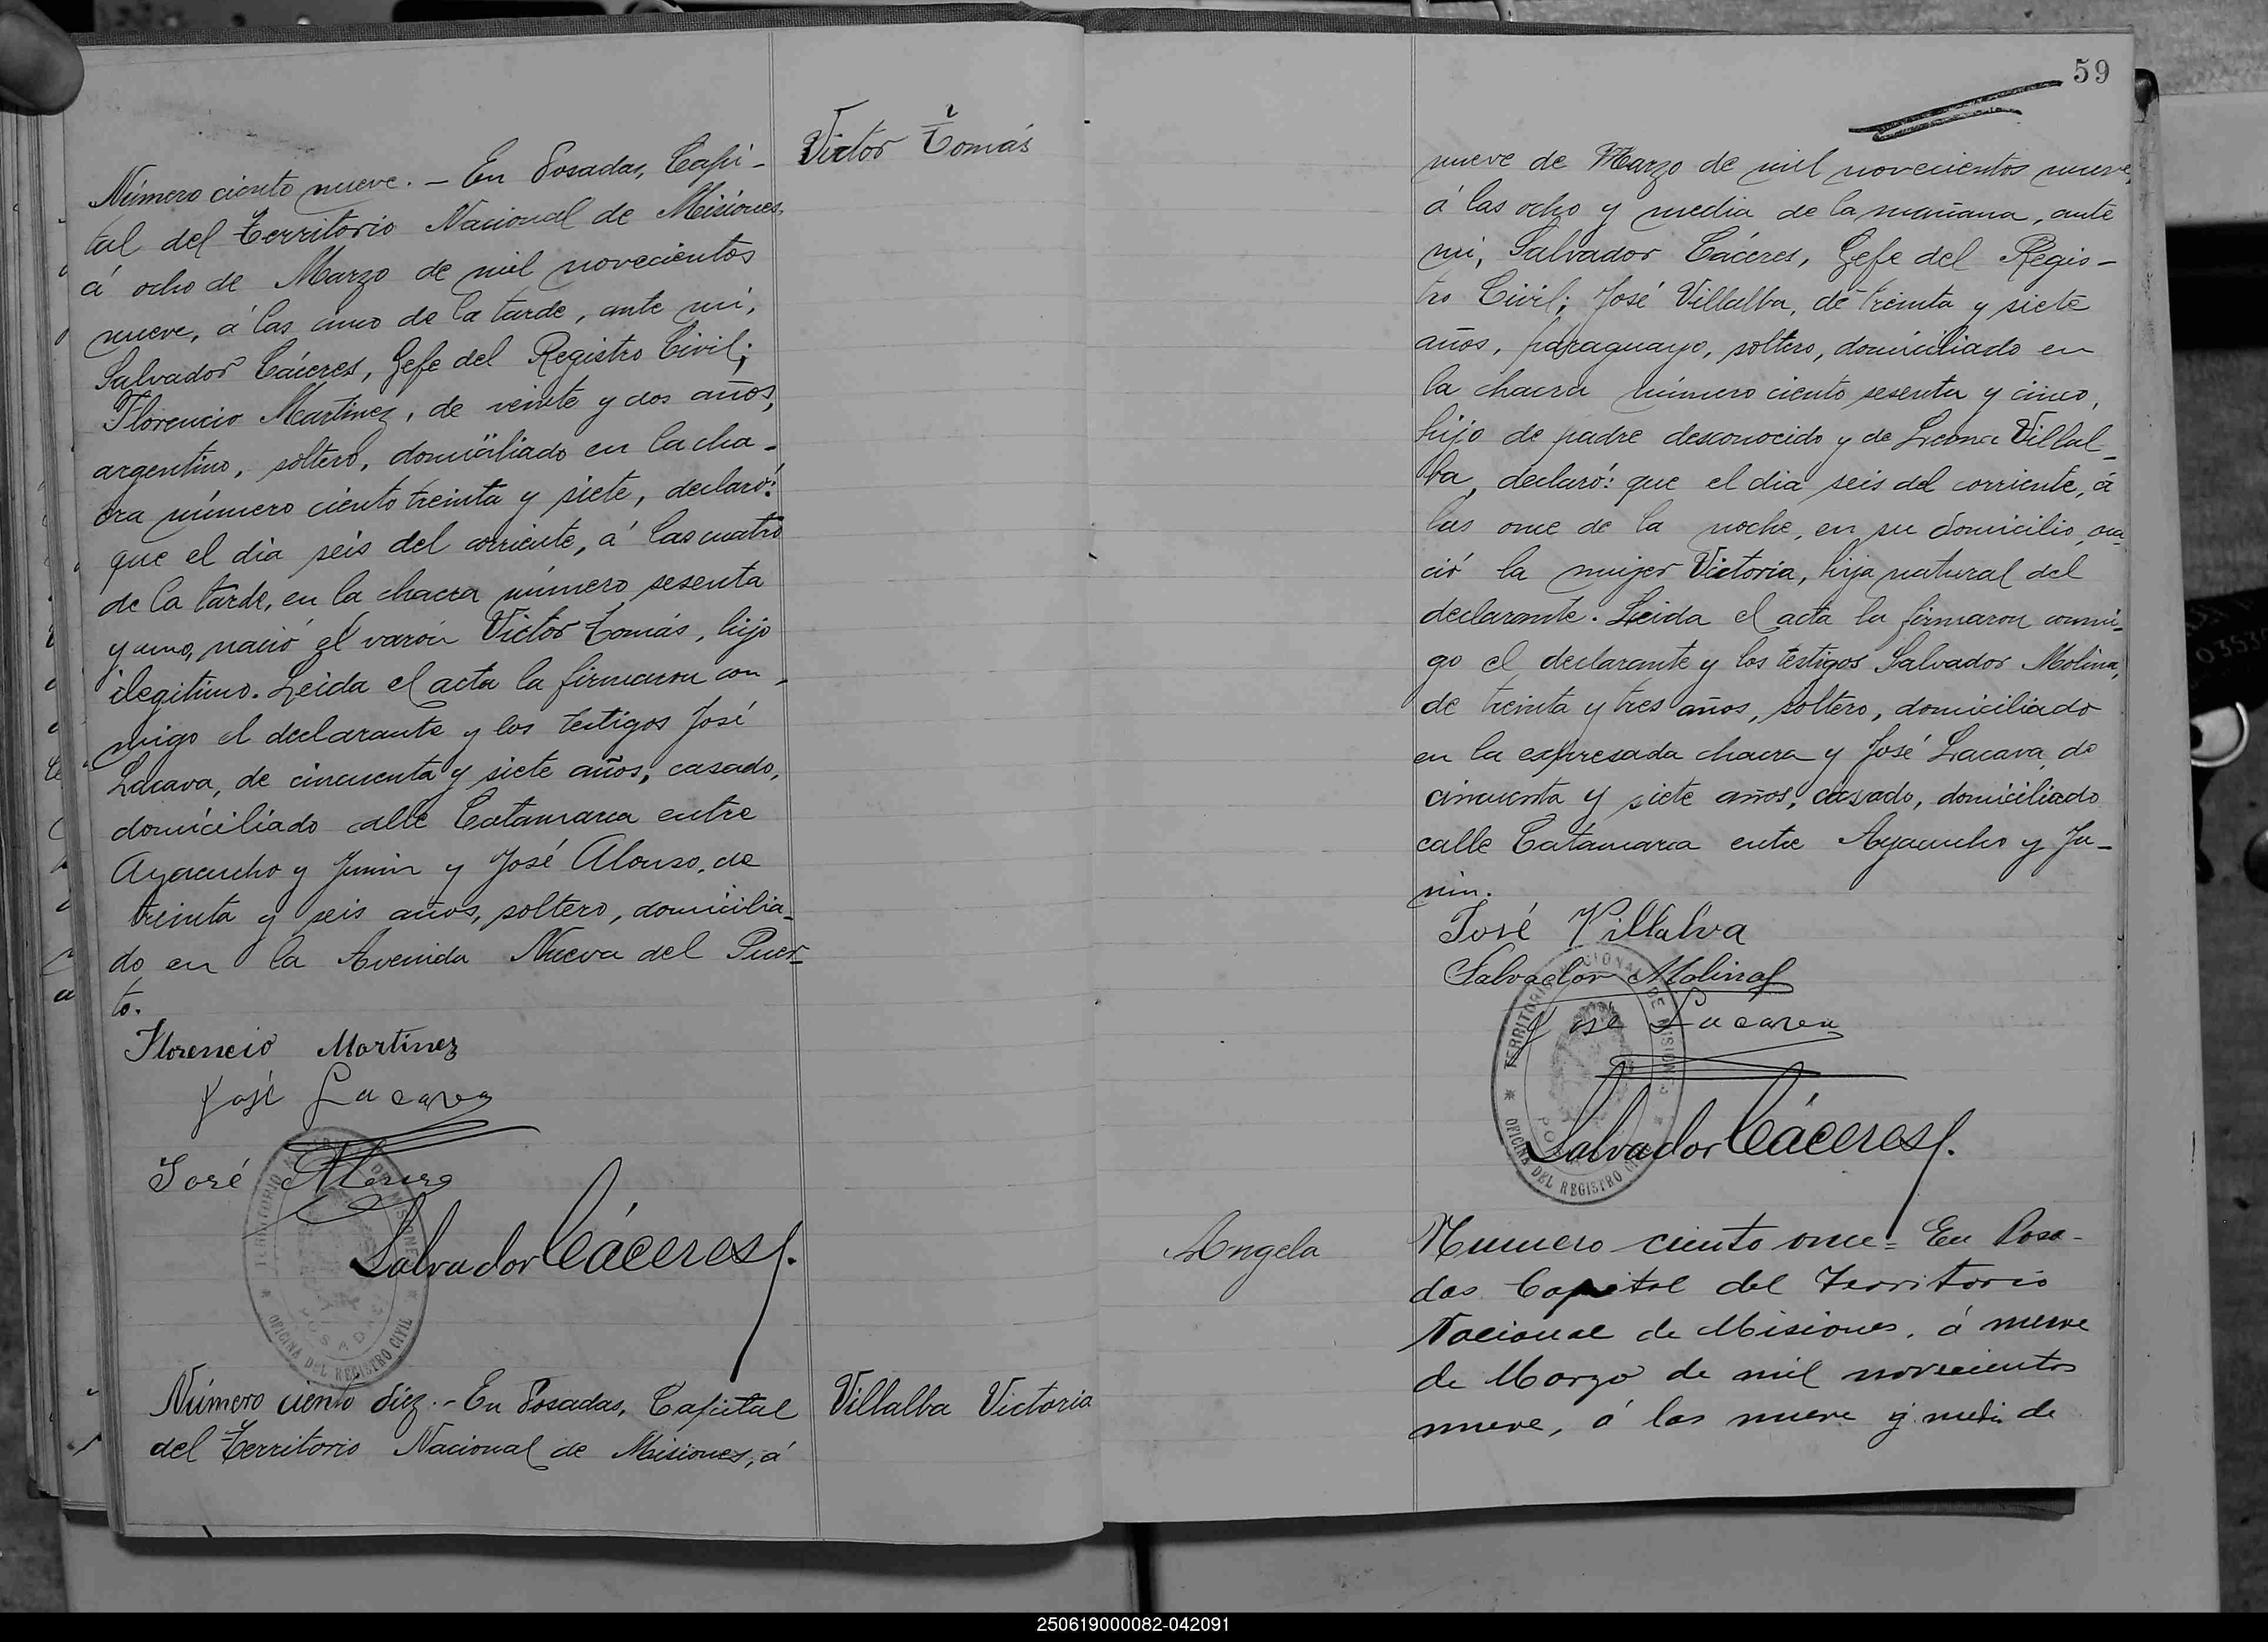 Victor Tomás
Número ciento nueve. - En Posadas, Capi-
tal del Territorio Nacional de Misiones,
á ocho de Marzo de mil novecientos
nueve, á las cinco de la tarde, ante mi,
Salvador Cáceres, Gefe del Registro Civil;
Florencio Martinez, de veinte y dos años,
argentino, soltero, domiciliado en la cha-
cra número ciento treinta y siete, declaró:
que el dia seis del corriente, á las cuatro
de la tarde, en la chacra número sesenta
y uno, nació el varón Victor Tomás, hijo
ilegitimo. Leida el acta la firmaron con-
migo el declarante y los testigos José
Lacava, de cincuenta y siete años, casado,
domiciliado calle Catamarca entre
Ayacucho y Junin y José Alonso, de
treinta y seis años, soltero, domicilia-
do en la Avenida Nueva del Puer-
to.
Florencio Martinez
José Lacava
José Alonso
Salvador Cáceres
TERRITORIO NACIONAL DE MISIONES
POSADAS
OFICINA DEL REGISTRO CIVIL
Villalba Victoria
Número ciento diez. - En Posadas, Capital
del Territorio Nacional de Misiones, á
59
nueve de Marzo de mil novecientos nueve,
á las ocho y media de la mañana, ante
mi, Salvador Cáceres, Gefe del Regis-
tro Civil; José Villalba, de treinta y siete
años, paraguayo, soltero, domiciliado en
la chacra número ciento sesenta y cinco,
hijo de padre desconocido y de Villal-
ba, declaró: que el dia seis del corriente, á
las once de la noche, en su domicilio, na-
ció la mujer Victoria, hija natural del
declarante. Leida el acta la firmaron conmi-
go el declarante y los testigos Salvador Molina,
de treinta y tres años, soltero, domiciliado
en la expresada chacra y José Lacava, de
cincuenta y siete años, casado, domiciliado
calle Catamarca entre Ayacucho y Ju-
nin.
José Villalva
Salvador Molina
José Lacava
TERRITORIO NACIONAL DE MISIONES
OFICINA DEL REGISTRO CIVIL
Salvador Cáceres
Angela
Numero ciento once = En Posa-
das Capital del Territorio
Nacional de Misiones, á nueve
de Marzo de mil novecientos
nueve, á las nueve y media de
250619000082-042091